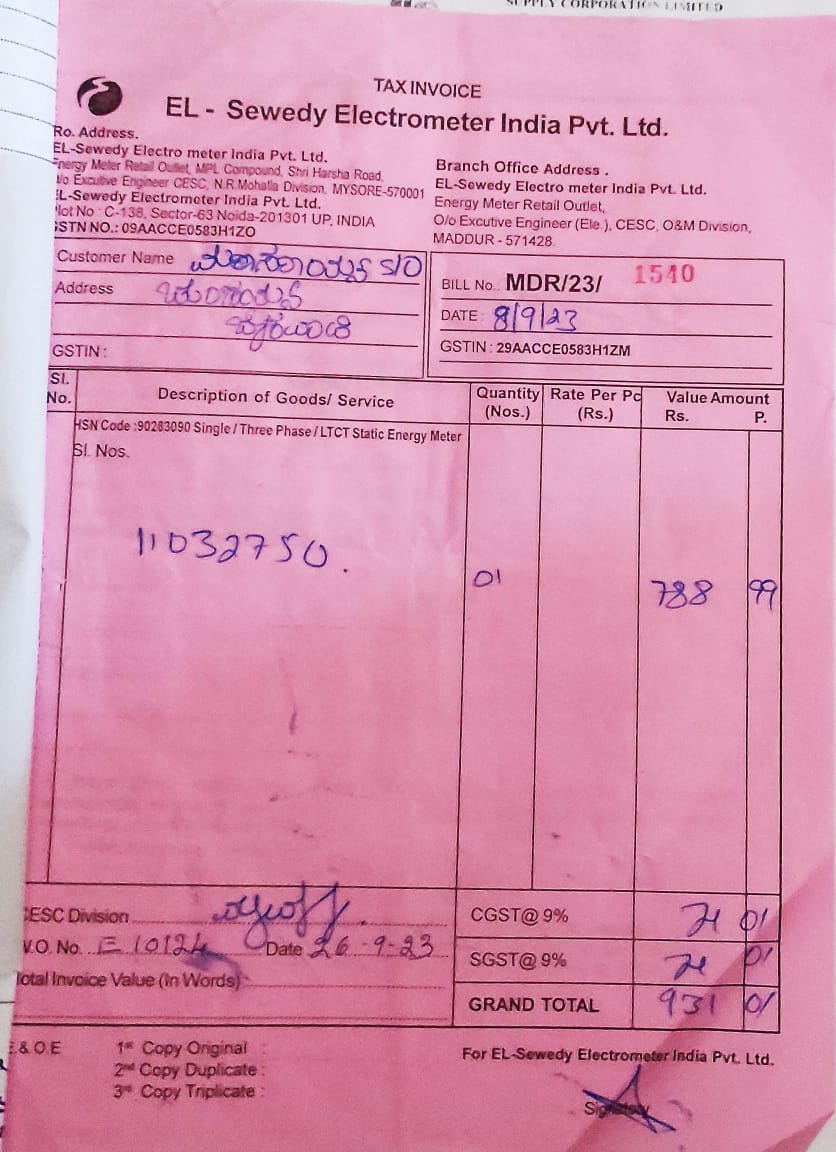 SUPPLY CORPORATION LIMITED
TAX INVOICE
EL - Sewedy Electrometer India Pvt. Ltd.
Ro. Address.
EL-Sewedy Electro meter India Pvt. Ltd.
Energy Meter Retail Outlet, MPL Compound, Shri Harsha Road,
I/o Excutive Engineer CESC, N.R.Mohalla Division, MYSORE-570001
EL-Sewedy Electrometer India Pvt. Ltd.
Plot No : C-138, Sector-63 Noida-201301 UP, INDIA
GSTN NO.: 09AACCE0583H1ZO
Branch Office Address .
EL-Sewedy Electro meter India Pvt. Ltd.
Energy Meter Retail Outlet,
O/o Excutive Engineer (Ele.), CESC, O&M Division,
MADDUR - 571428
Customer Name S/O
Address
GSTIN :
BILL No.: MDR/23/ 1540
DATE : 8/9/23
GSTIN : 29AACCE0583H1ZM
Sl. No. Description of Goods/ Service Quantity (Nos.) Rate Per Pc (Rs.) Value Amount Rs. P.
HSN Code :90283090 Single / Three Phase / LTCT Static Energy Meter
Sl. Nos.
11032750. 01 788 99
CESC Division
CGST@ 9% 71 01
W.O. No. E 10124 Date 26-9-23
SGST@ 9% 71 01
Total Invoice Value (In Words)
GRAND TOTAL 931 01
E.& O.E
1st Copy Original :
2nd Copy Duplicate :
3rd Copy Triplicate :
For EL-Sewedy Electrometer India Pvt. Ltd.
Signatory